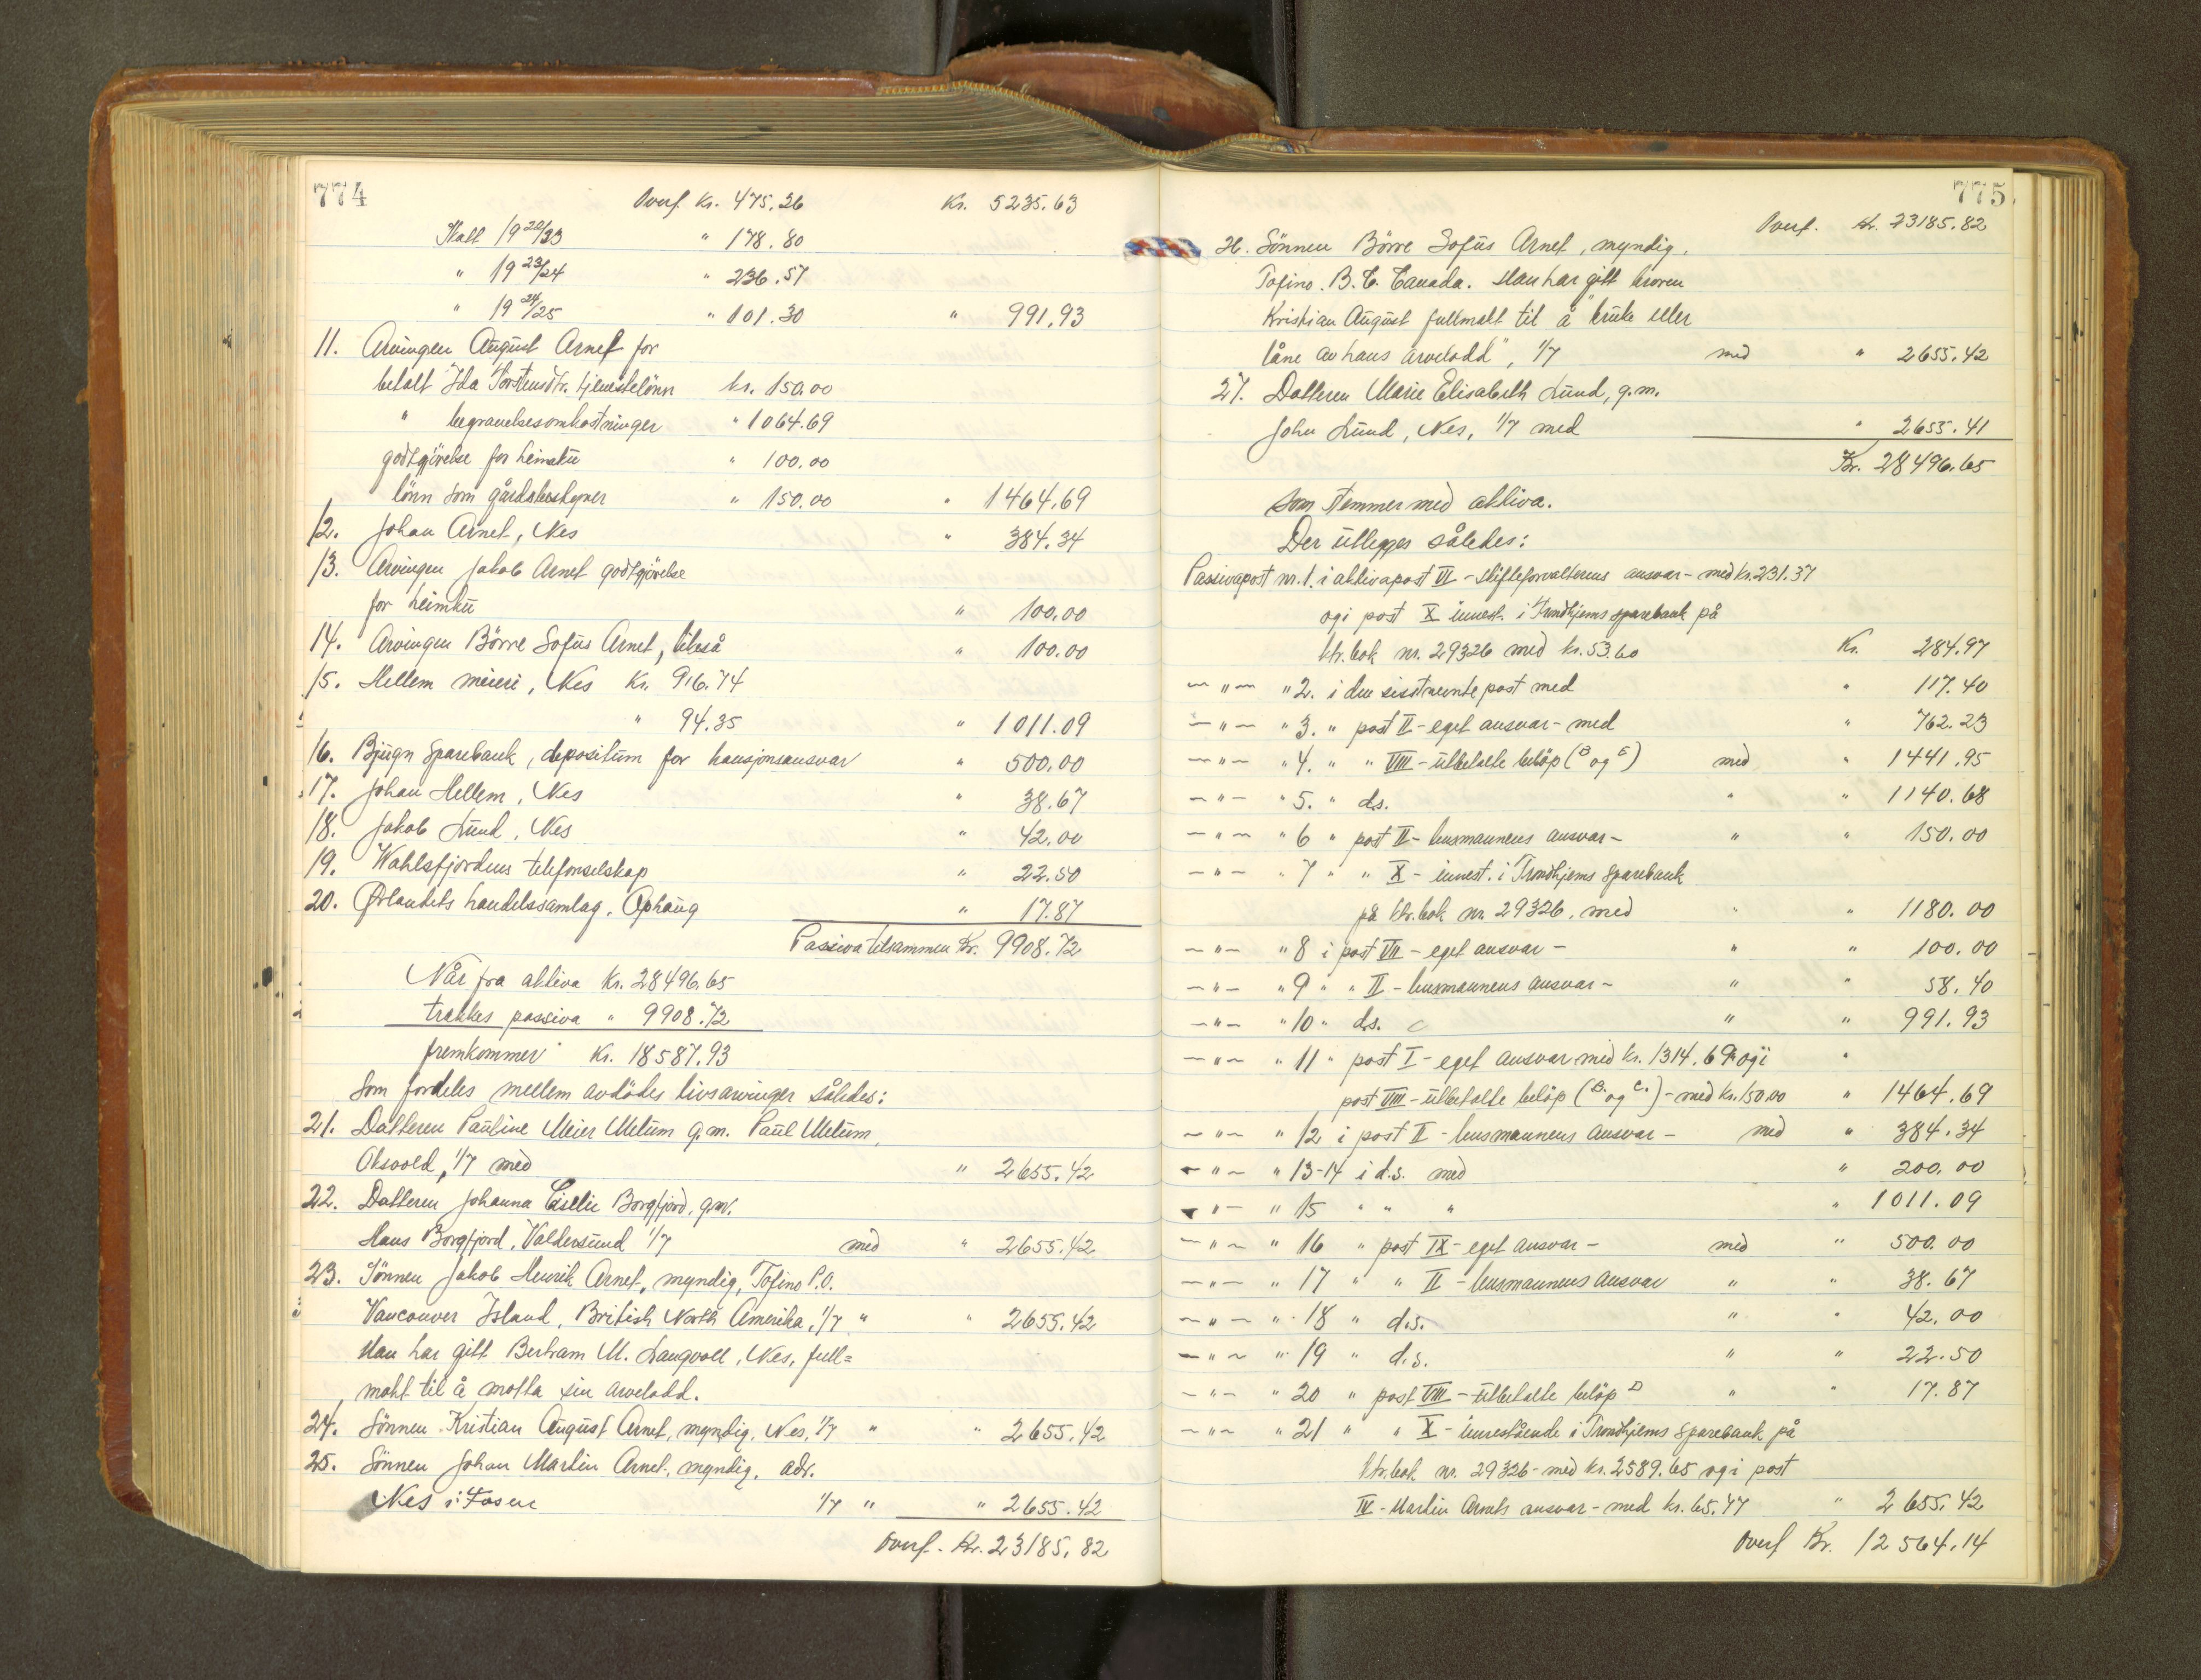 774
Overf. Kr. 475.26 Kr. 5235.63
Skatt 19 22/23 " 178.80
" 19 23/24 " 236.57
" 19 24/25 " 101.30 " 991.93
11. Arvingen August Arnet for
betalt Ida Torstensdtr. tjenestelönn kr. 150.00
" begravelsesomkostninger " 1064.69
godtgjörelse for heimku " 100.00
lönn som gårdsbestyrer " 150.00 " 1464.69
12. Johan Arnet, Nes " 384.34
13. Arvingen Jakob Arnet godtgjörelse
for heimku " 100.00
14. Arvingen Börre Sofus Arnet, likeså " 100.00
15. Hellem meieri, Nes Kr. 916.74
" 94.35 " 1011.09
16. Bjugn Sparebank, depositum for kausjonsansvar " 500.00
17. Johan Hellem, Nes " 38.67
18. Jakob Lund, Nes " 42.00
19. Wahlsfjordens telefonselskap " 22.50
20. Ørlandets handelssamlag, Ophaug " 17.87
Passiva tilsammen Kr. 9908.72
Når fra aktiva Kr. 28496.65
trekkes passiva " 9908.72
fremkommer Kr. 18587.93
som fordeles mellem avdödes livsarvinger således:
21. Datteren Pauline Meier Uletum g.m. Paul Uletum,
Oksvold, 1/7 med " 2655.42
22. Datteren Johanna Borgfjord, g.m.
Hans Borgfjord, Valdersund 1/7 med " 2655.42
23. Sönnen Jakob Henrik Arnet, myndig, Tofino P.O.
Vancouver Island, British North Amerika, 1/7 " " 2655.42
Han har gitt Bertram M. Langvoll, Nes, full=
makt til å motta sin arvelodd.
24. Sönnen Kristian August Arnet, myndig, Nes, 1/7 " " 2655.42
25. Sönnen Johan Martin Arnet, myndig, adr.
Nes i Fosen 1/7 " " 2655.42
Overf. Kr. 23185.82
775
Overf. Kr. 23185.82
Sönnen Börre Sofus Arnet, myndig,
Tofino. B.C. Canada. Han har gitt broren
Kristian August fullmakt til å "bruke eller
låne av hans arvelodd", 1/7 med " 2655.42
27. Datteren Marie Elisabeth Lund, g.m.
John Lund, Nes, 1/7 med " 2655.41
Kr. 28496.65
som stemmer med aktiva.
Der utlegges således:
Passivapost nr. 1. i aktivapost VI - skifteforvalterens ansvar - med kr. 231.37
og i post X innest. i Trondhjems sparebank på
ktr.bok nr. 29326 med kr. 53.60 Kr. 284.97
- " - " 2. i den sisstnevnte post med " 117.40
- " - " 3. " post II - eget ansvar - med " 762.23
- " - " 4. " " VIII - utbetalte belöp (B og E) med " 1441.95
- " - " 5. " d.s. " " 1140.68
- " - " 6 " post II - husmannens ansvar - " " 150.00
- " - " 7 " " X - innest. i Trondhjems Sparebank
på ktr.bok nr. 29326, med " " 1180.00
- " - " 8 i post VII - eget ansvar - " " 100.00
- " - " 9 " " II - husmannens ansvar - " " 58.40
- " - " 10 " d.s. " " 991.93
- " - " 11 " post I - eget ansvar med kr. 1314.69 og i "
post VIII - utbetalte belöp (B. og C.) - med kr. 150.00 " 1464.69
- " - " 12 i post II - husmannens ansvar - med " 384.34
- " - " 13-14 i d.s. med " 200.00
- " - " 15 " " " " 1011.09
- " - " 16 " post IX - eget ansvar - med " 500.00
- " - " 17 " " II - husmannens ansvar " " 38.67
- " - " 18 " d.s. " " 42.00
- " - " 19 " d.s. " " 22.50
- " - " 20 " post VIII - utbetalte belöp D " " 17.87
- " - " 21 " " X - innestående i Trondhjems Sparebank på
ktr.bok nr. 29326 - med kr. 2589.65 og i post
IV - Martin Arnets ansvar - med kr. 65.77 " 2655.42
Overf Kr. 12564.14